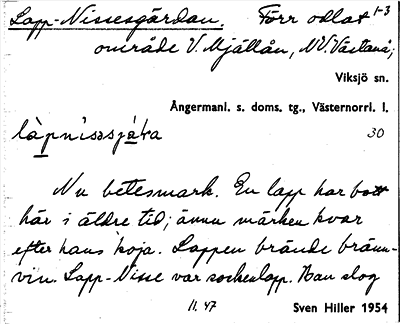 Lapp-Nissesgårdan. Förr odlat 1-3
område V. Mjällån, NV. Västanå;
Viksjö sn.
Ångermanl. s. doms. tg., Västernorrl. l.
30
Nu betesmark. En lapp har bott
här i äldre tid; ännu märken kvar
efter hans koja. Lappen brände bränn-
vin. Lapp-Nisse var sockenlapp. Han slog
11.47 Sven Hiller 1954